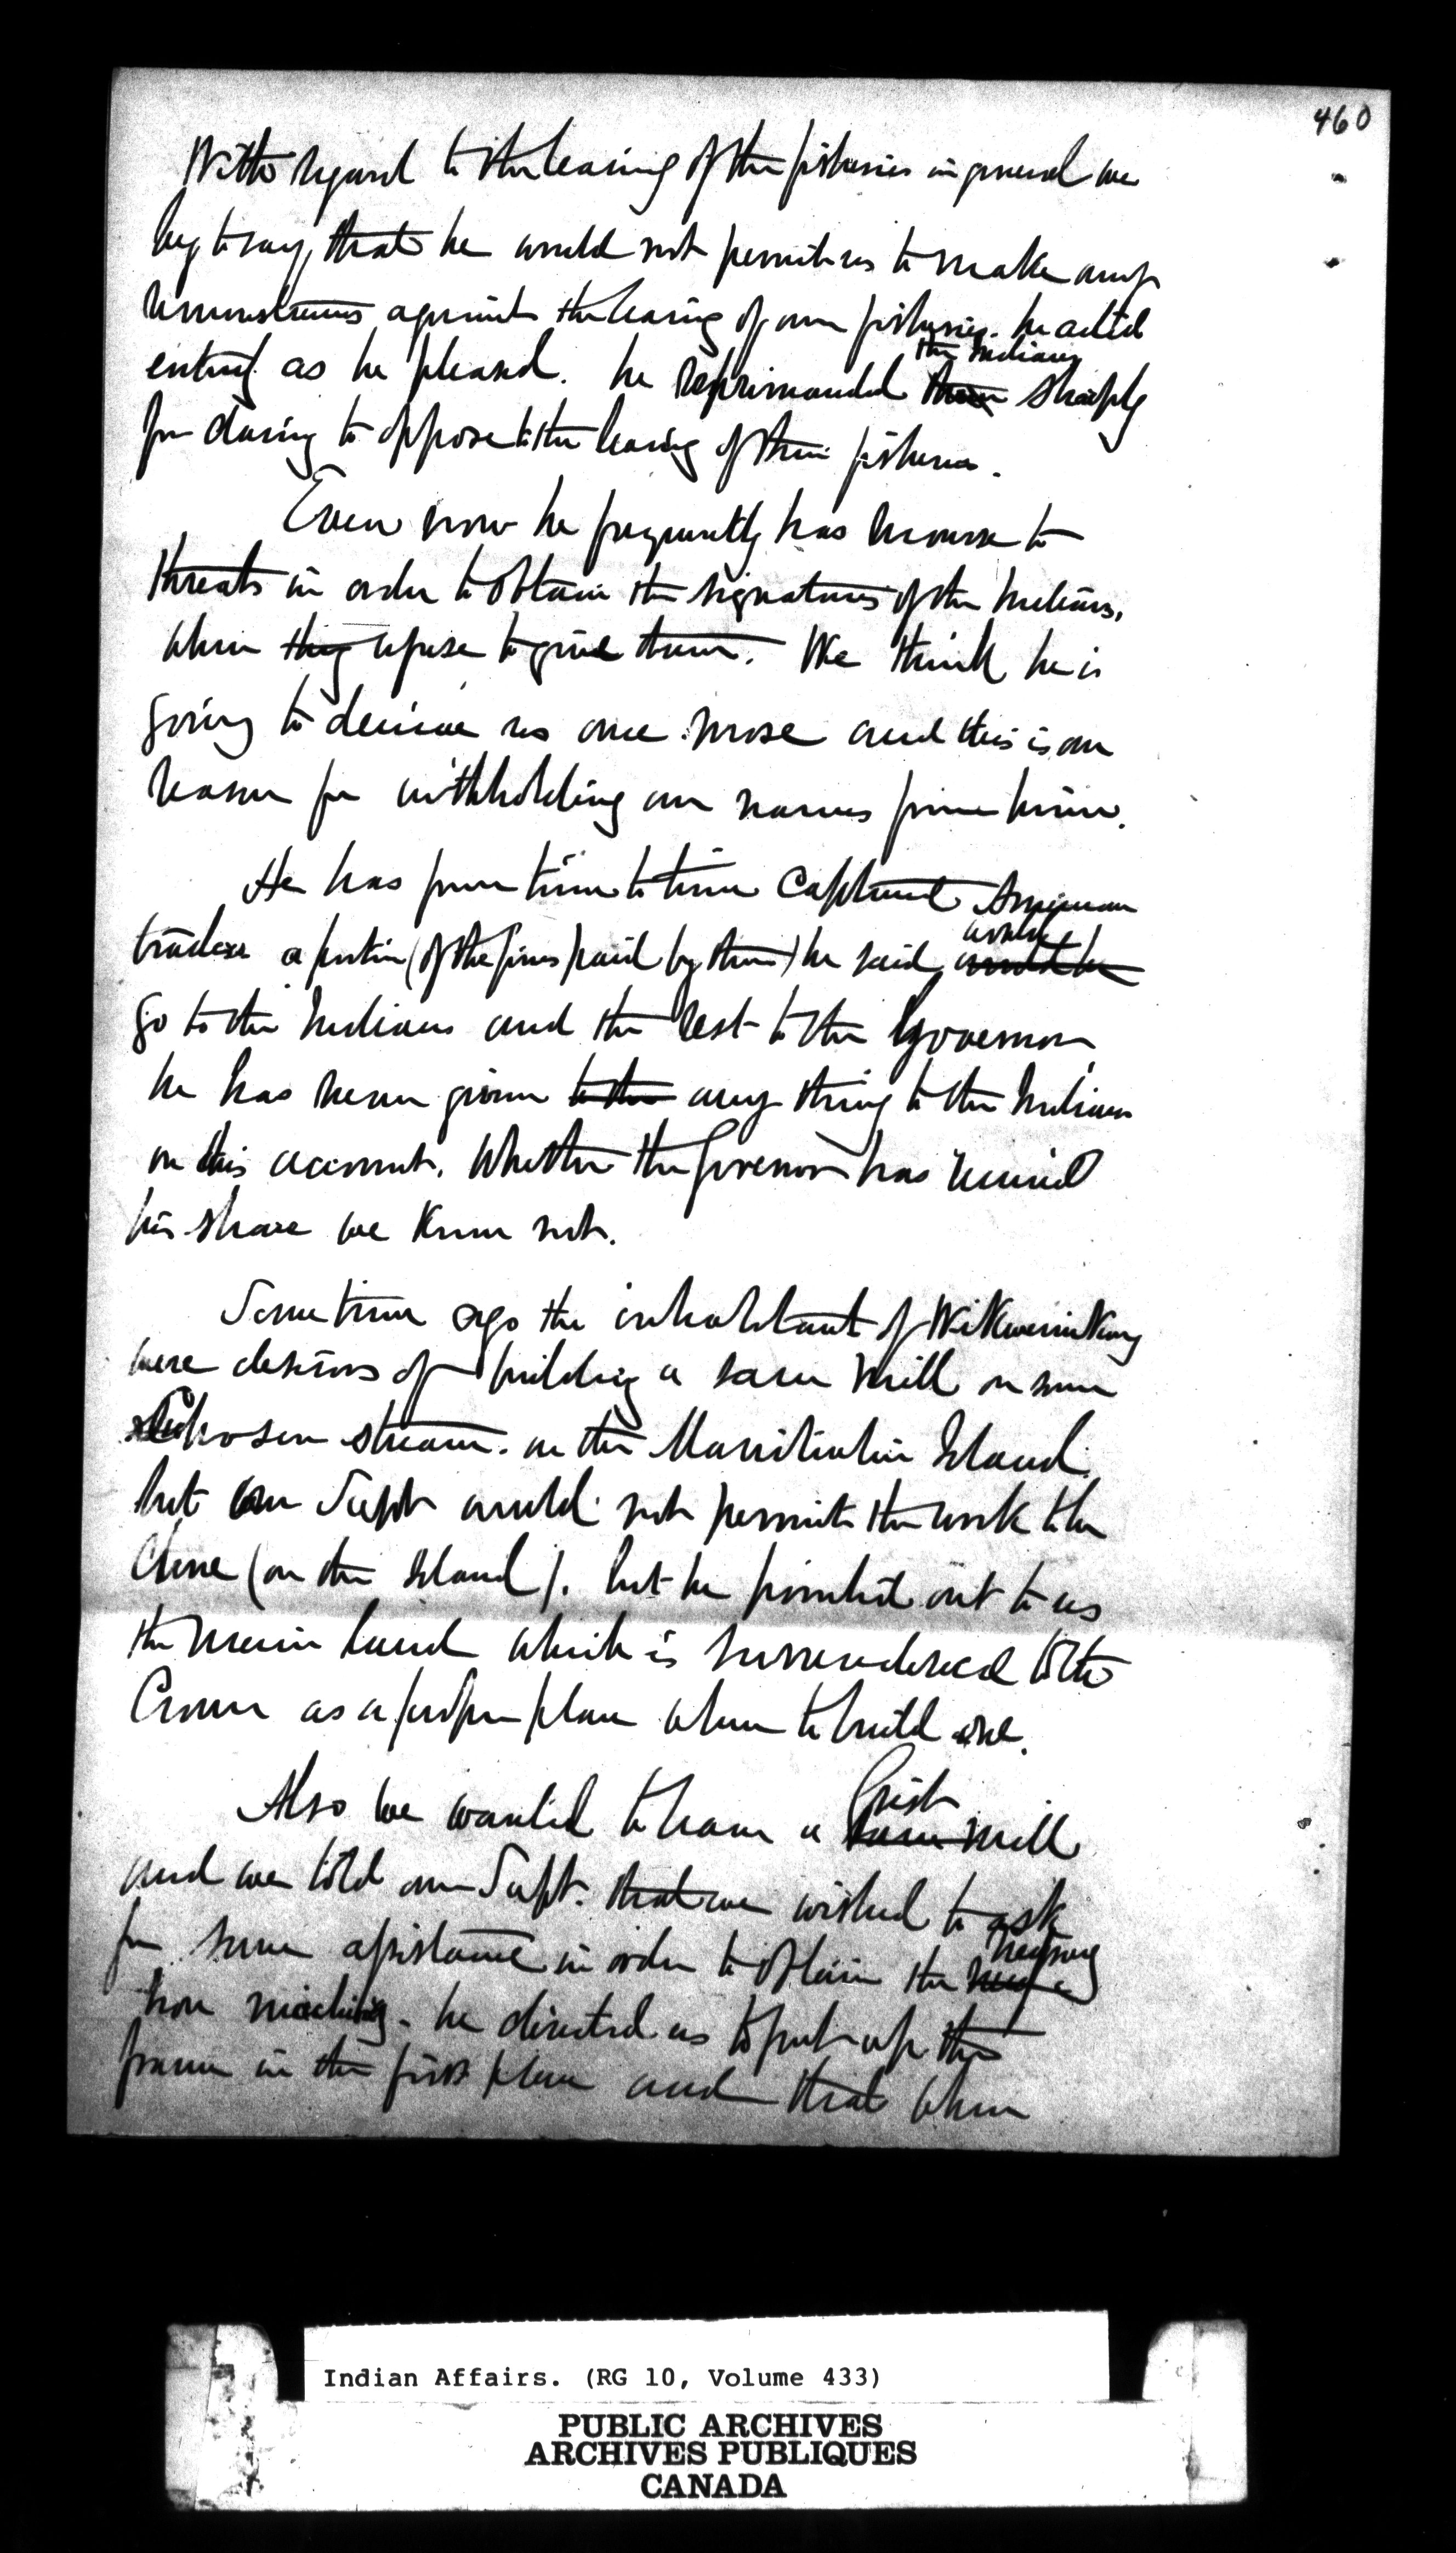 460
With regard to the leasing of the fisheries in general we
beg to say, that he would not permit us to make any
remonstrances against the leasing of our fisheries. he acted
entirely as he pleased. he reprimanded the Indians them sharply
for daring to oppose to the leasing of their fisheries.
Even now he frequently has recourse to
threats in order to obtain the signatures of the Indians,
when they refuse to give them. We think he is
going to deceive us once more and this is our
reason for withholding our names from him.
He has from time to time captured American
traders a portion (of the fines paid by them) he said would would be
go to the Indians and the rest to the Governor,
he has never given to the any thing to the Indians
on this account. Whether the Governor has received
his share we know not.
Sometime ago the inhabitants of Wikwemikong
were desirous of building a saw mill on some
chosen stream. on the Manitoulin Island.
but our Supt would not permit the work to be
done (on the Island). but he pointed out to us
the main land which is surrendered to the
Crown as a proper place where to build one.
Also we wanted to have a Grist saw mill
and we told our Supt. that we wished to ask
for some assistance in order to obtain the necessary
iron machinery. he directed us to put up the
frame in the first place and that when
Indian Affairs. (RG 10, Volume 433)
PUBLIC ARCHIVES
ARCHIVES PUBLIQUES
CANADA